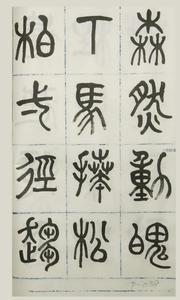 森然動魄
下馬捧松
柏徑